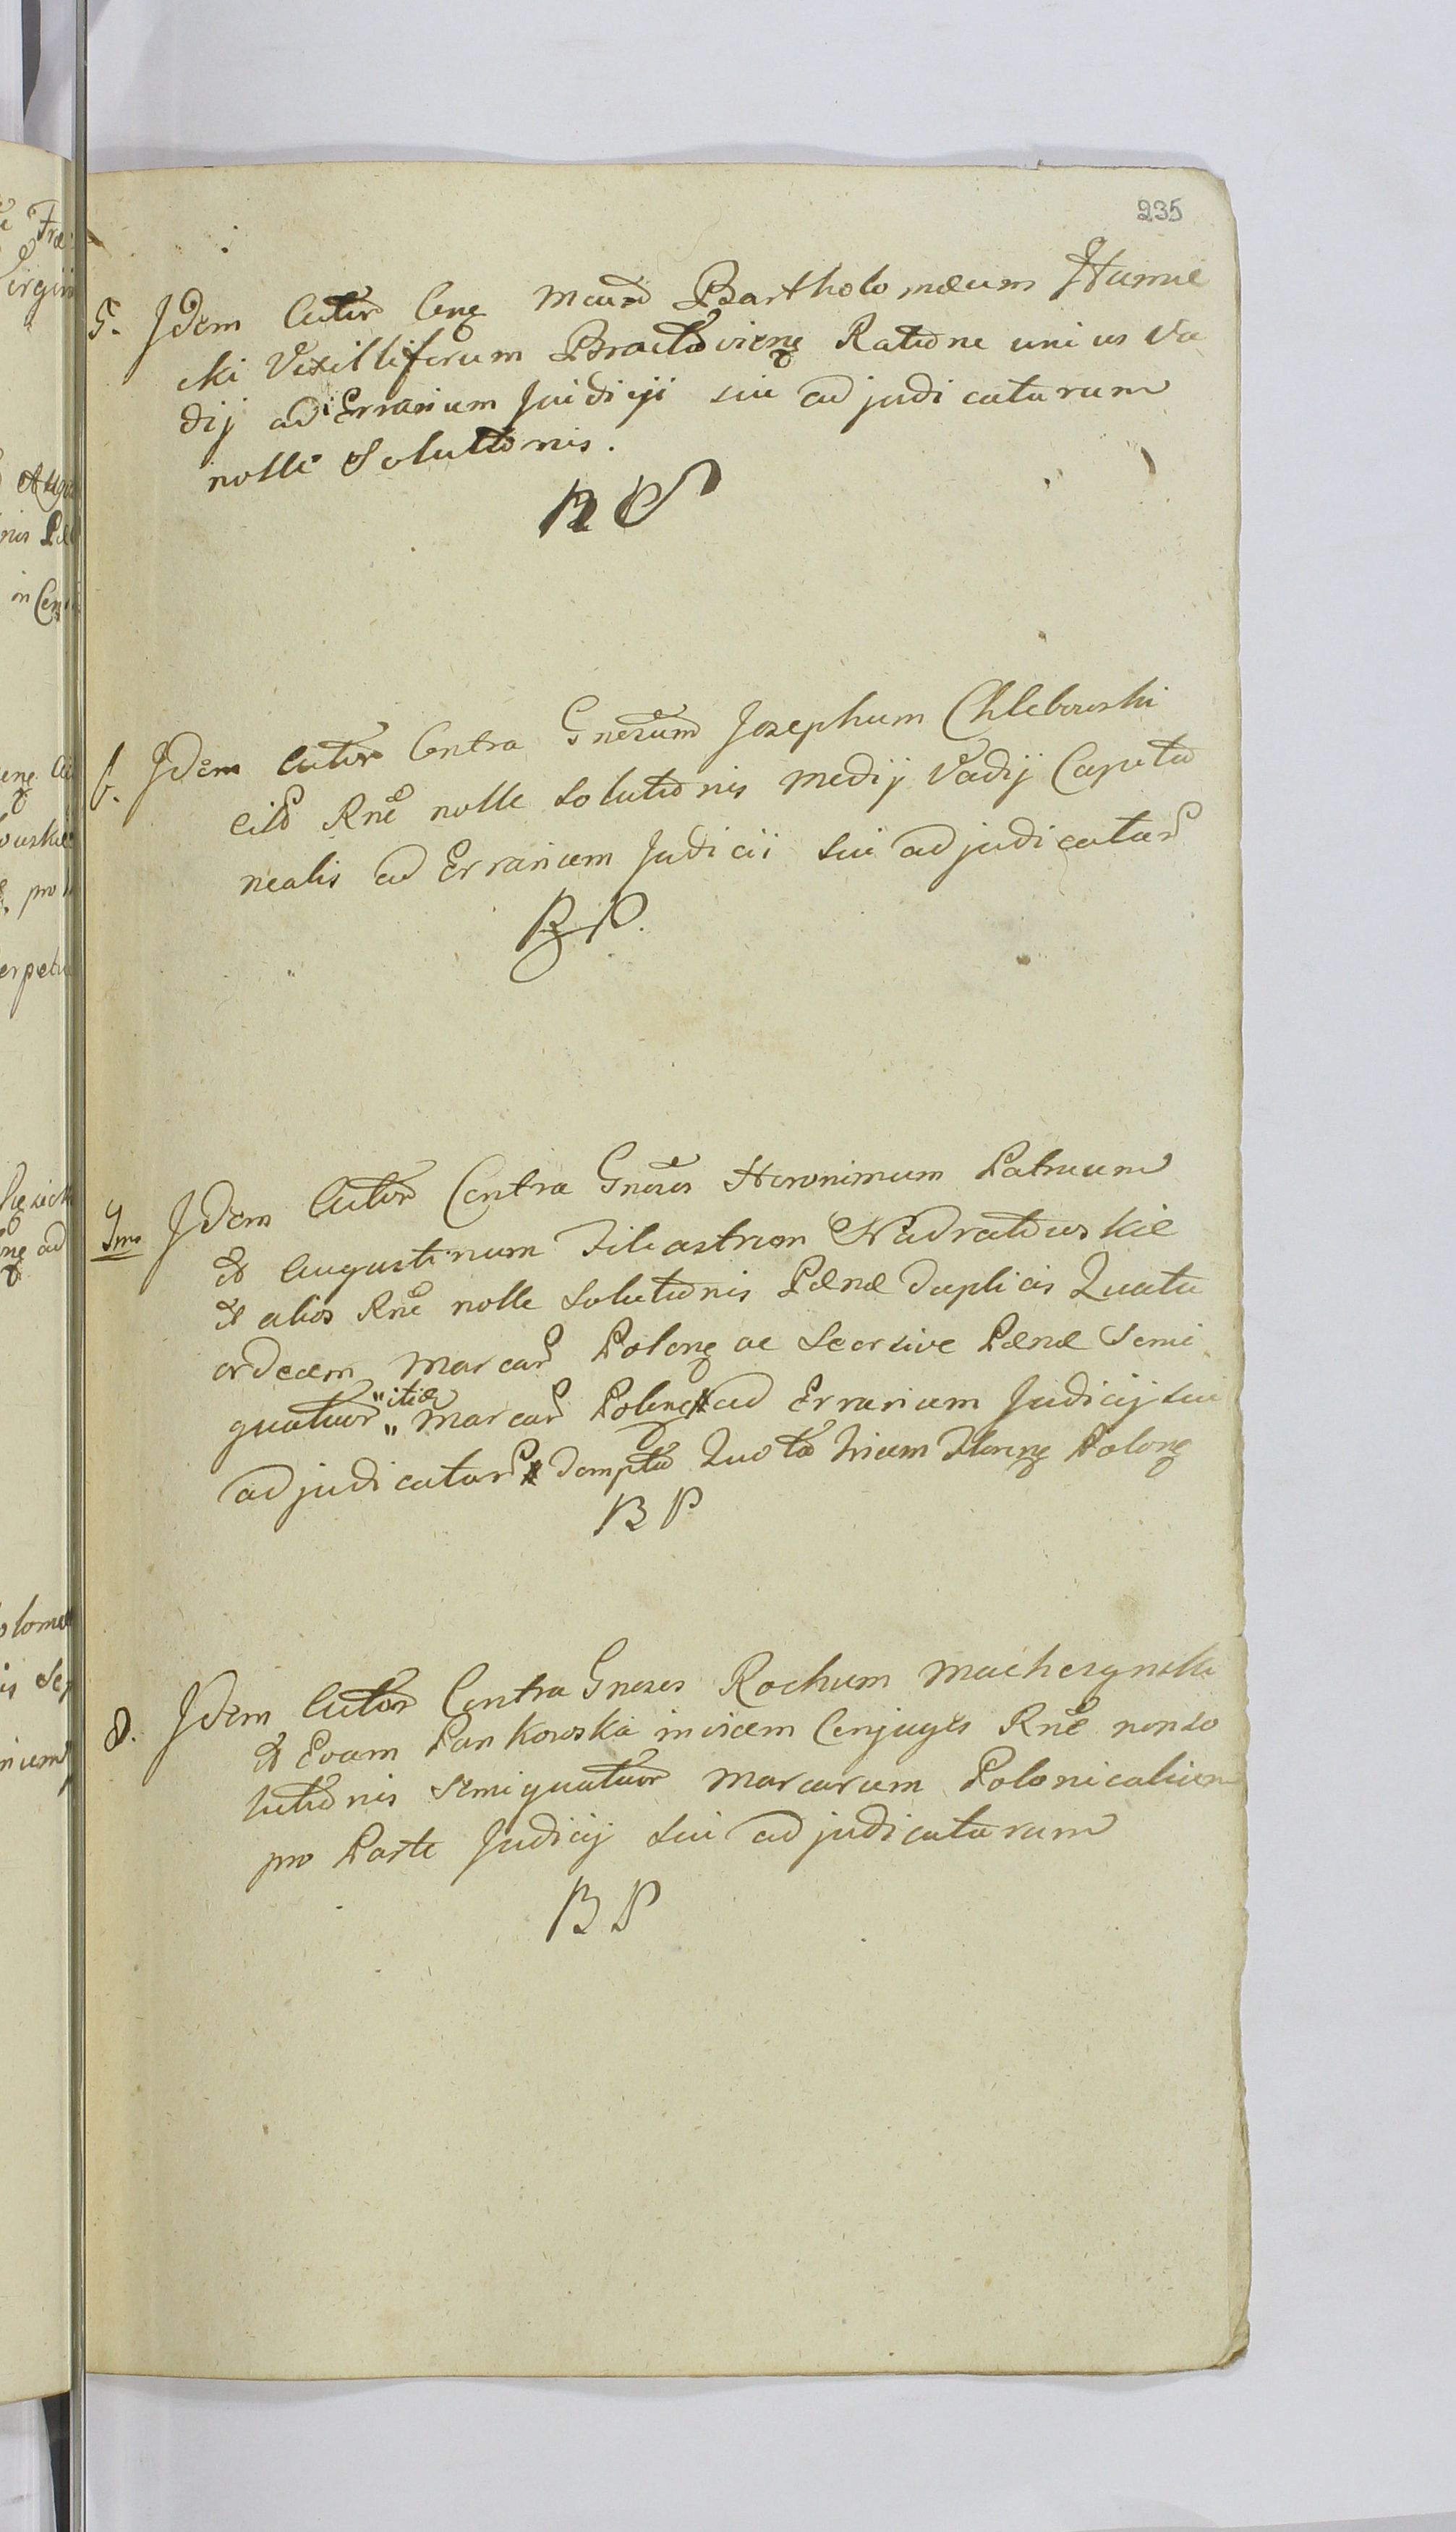 235
5. Idem Actor Cong Mcum Bartholomæum Humie
cki Vexilliferum Braclavieng Ratione unius Va
dij ad Errarium Judicij sui adjudicatarum
nolle Solutionis.
RP
6. Idem Actor Contra Gnerum Josephum Chlebowski
Rne nolle Solutionis medij Vadij Capitu
nealis ad Errarium Judicii sui adjudicatar
RP.
7mo Idem Actor Contra Gneros Heronimum Patruum
et Augustinum Filiastrum Nadratowskie
et alios Rne nolle Solutionis Pænæ duplicis Quatu
ordecem Marcar Polong ac Seorsive Pænæ Semi
quatuor "itid" Marcar Polong ad Errarium Judicij sui
adjudicatar dempta Quota trium Floreng Polong
RP
8. Idem Actor Contra Gneros Rochum Machczynski
et Evam Pankowska invicem Conjuges Rne nonso
lutionis Semiquatuor Marcarum Polonicalium
pro Parte Judicij sui adjudicatarum
RP